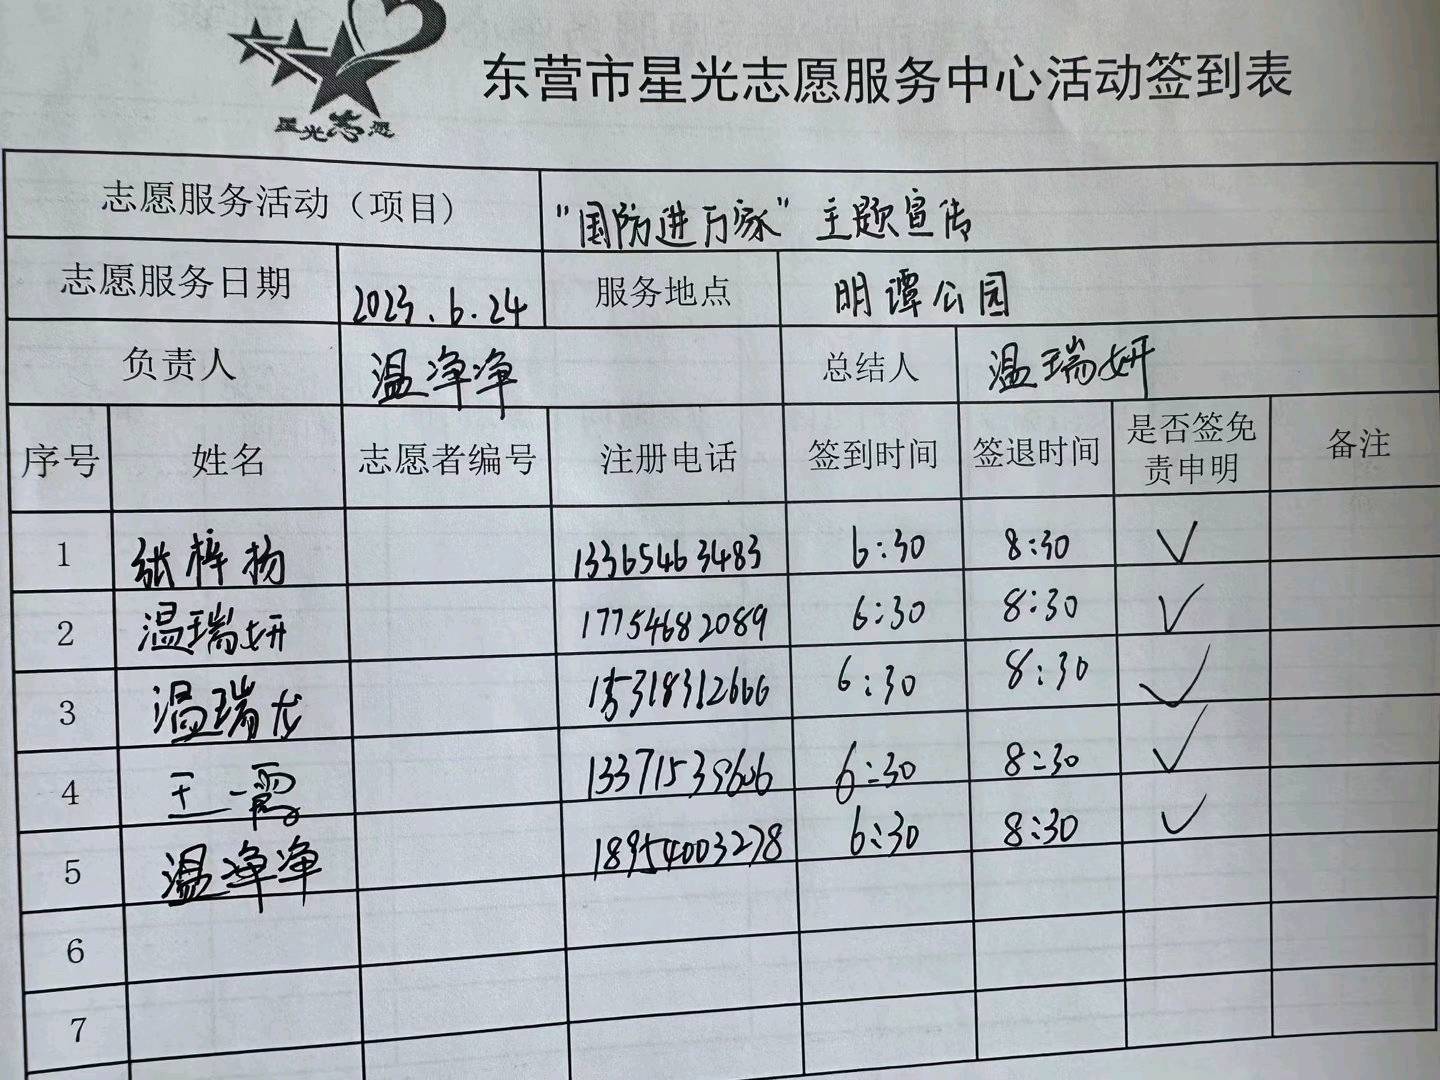 星光志愿
东营市星光志愿服务中心活动签到表
志愿服务活动（项目） "国防进万家"主题宣传
志愿服务日期 2023.6.24 服务地点 明谭公园
负责人 温净净 总结人 温瑞妍
序号 姓名 志愿者编号 注册电话 签到时间 签退时间 是否签免责申明 备注
1 张梓扬 13365463483 6:30 8:30 ✓
2 温瑞妍 17754682089 6:30 8:30 ✓
3 温瑞龙 15318312666 6:30 8:30 ✓
4 王一 13371539606 6:30 8:30 ✓
5 温净净 18954003278 6:30 8:30 ✓
6
7